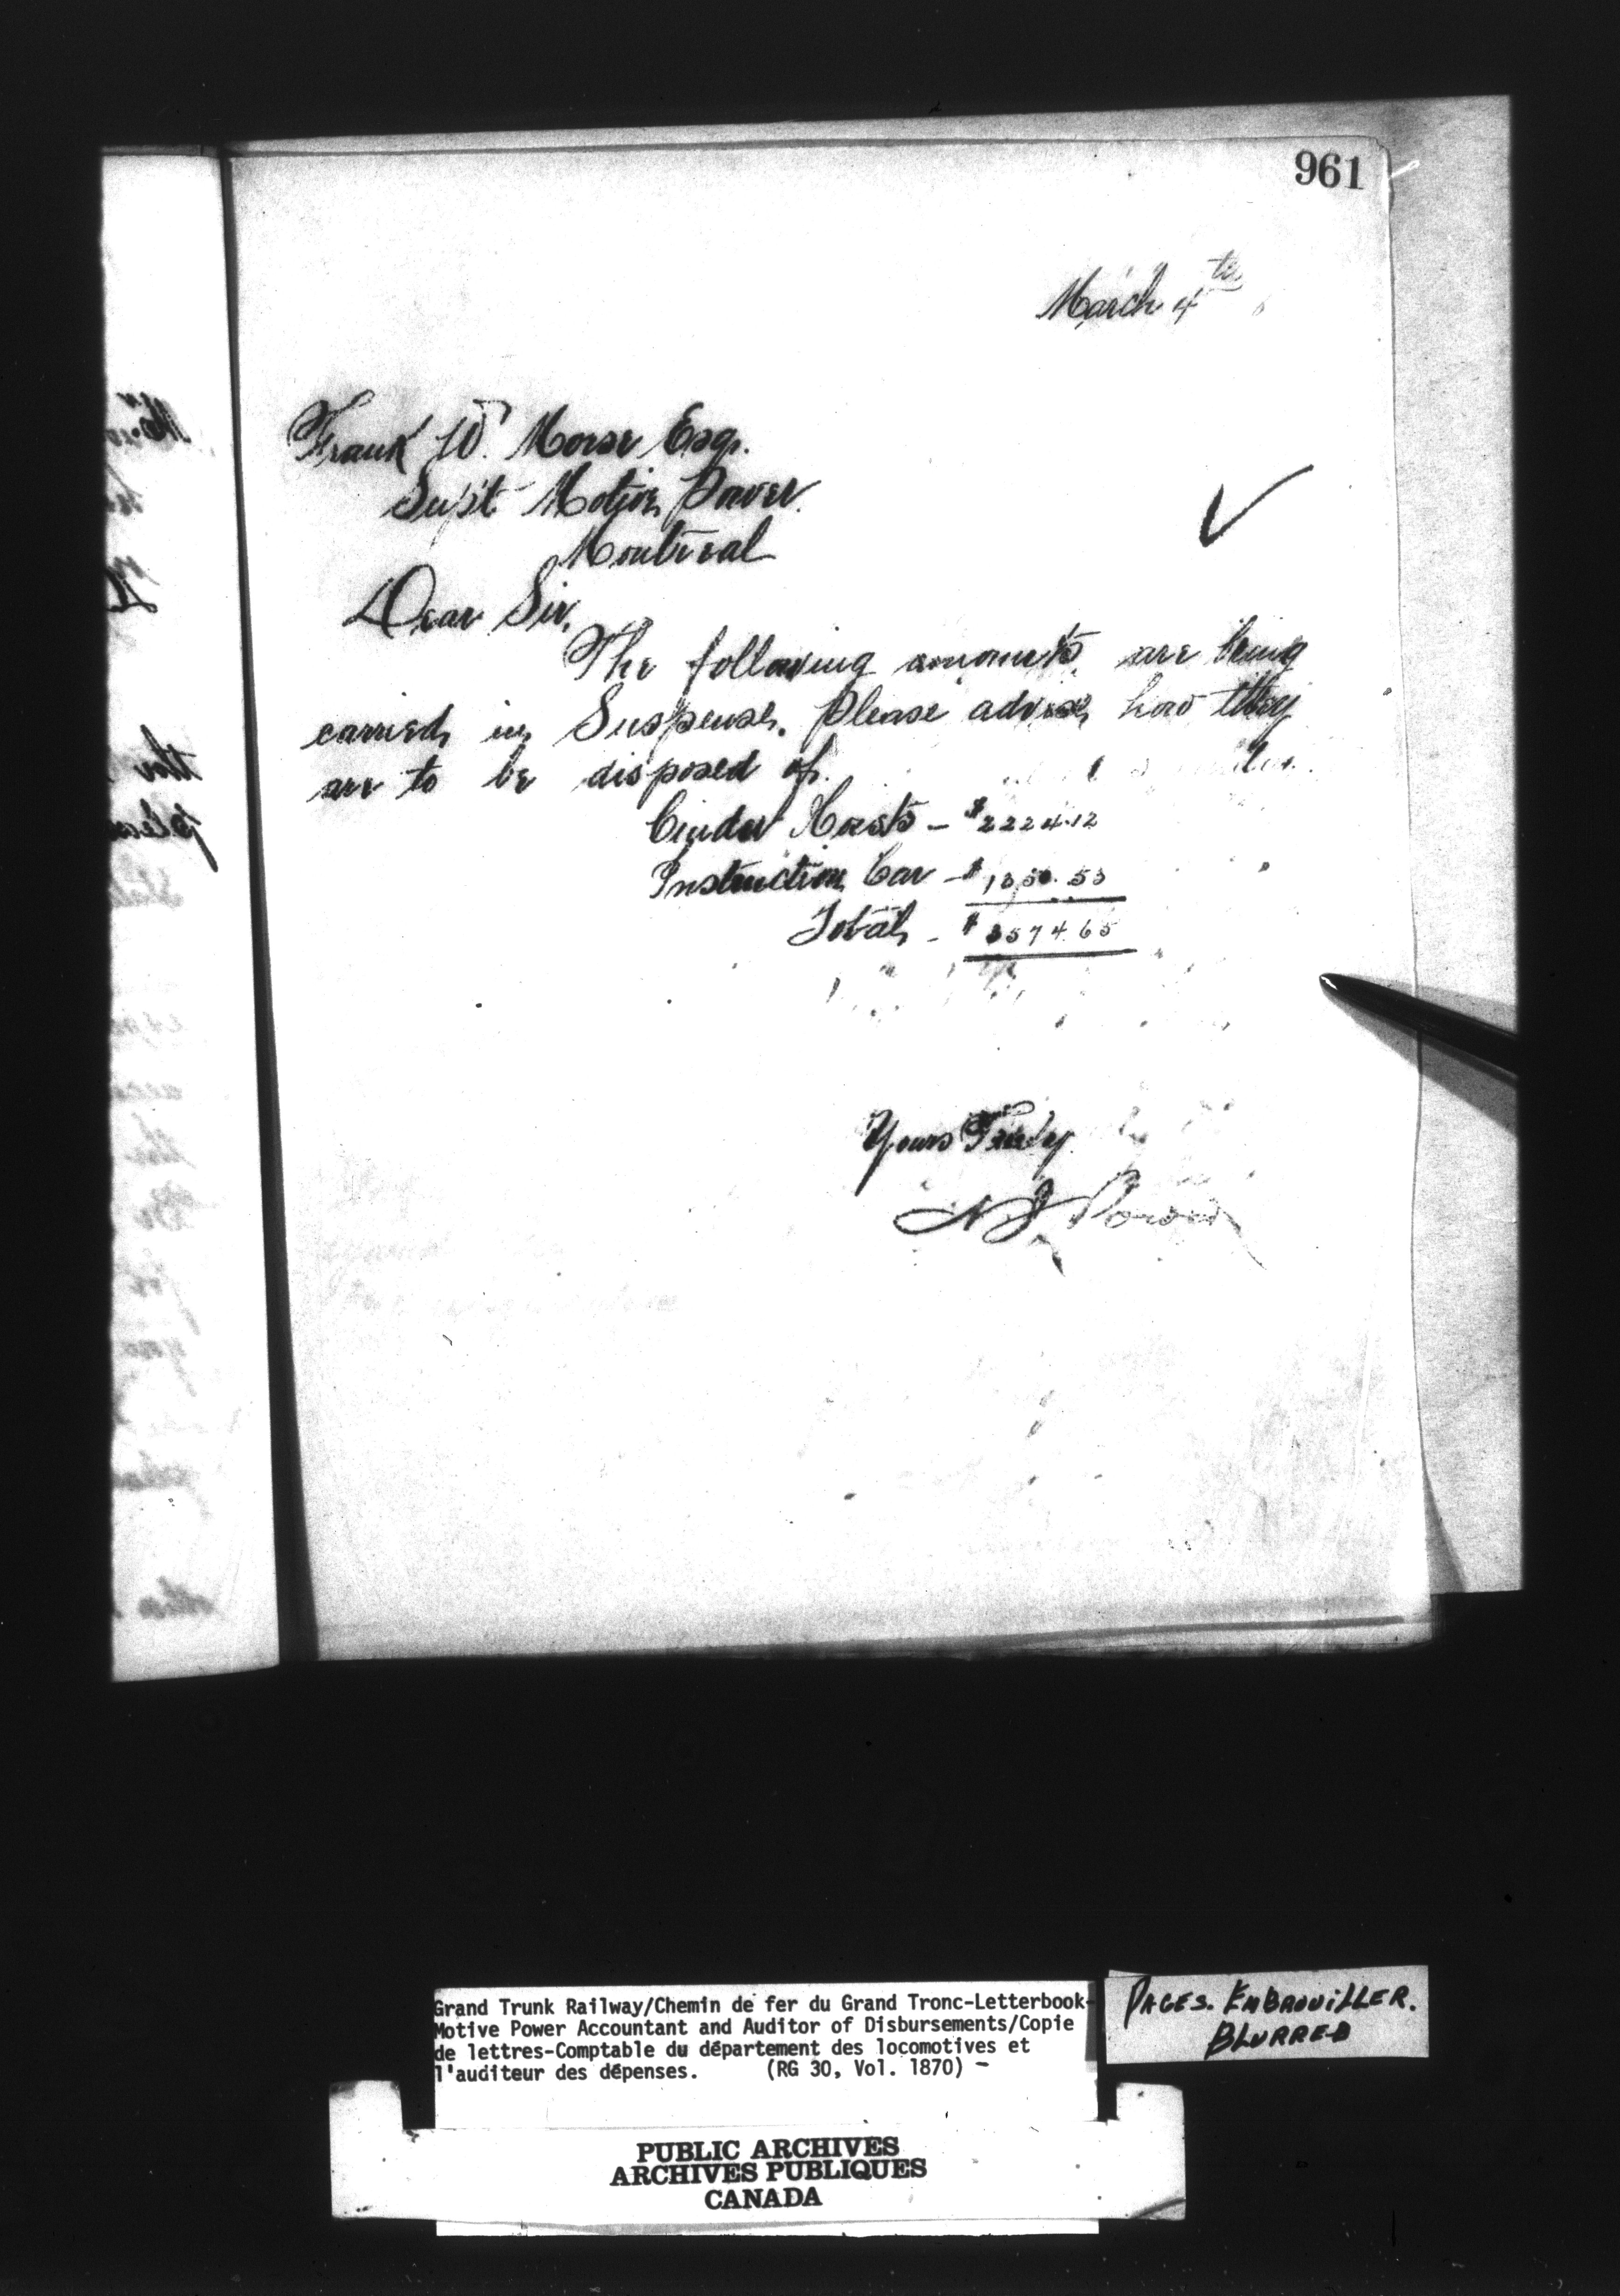 961
March 4th
Frank W. Morse Esq.
Supt Motive Power
Montreal
Dear Sir,
The following amounts are being
carried in Suspense. Please advise how they
are to be disposed of.
Cinder Hoists - $2224.12
Instruction Car - $1350.53
Total - $3574.65
Yours Truly
N J Power
Grand Trunk Railway/Chemin de fer du Grand Tronc-Letterbook-
Motive Power Accountant and Auditor of Disbursements/Copie
de lettres-Comptable du département des locomotives et
l'auditeur des dépenses. (RG 30, Vol. 1870) -
PAGES. EMBROUILLER.
BLURRED
PUBLIC ARCHIVES
ARCHIVES PUBLIQUES
CANADA